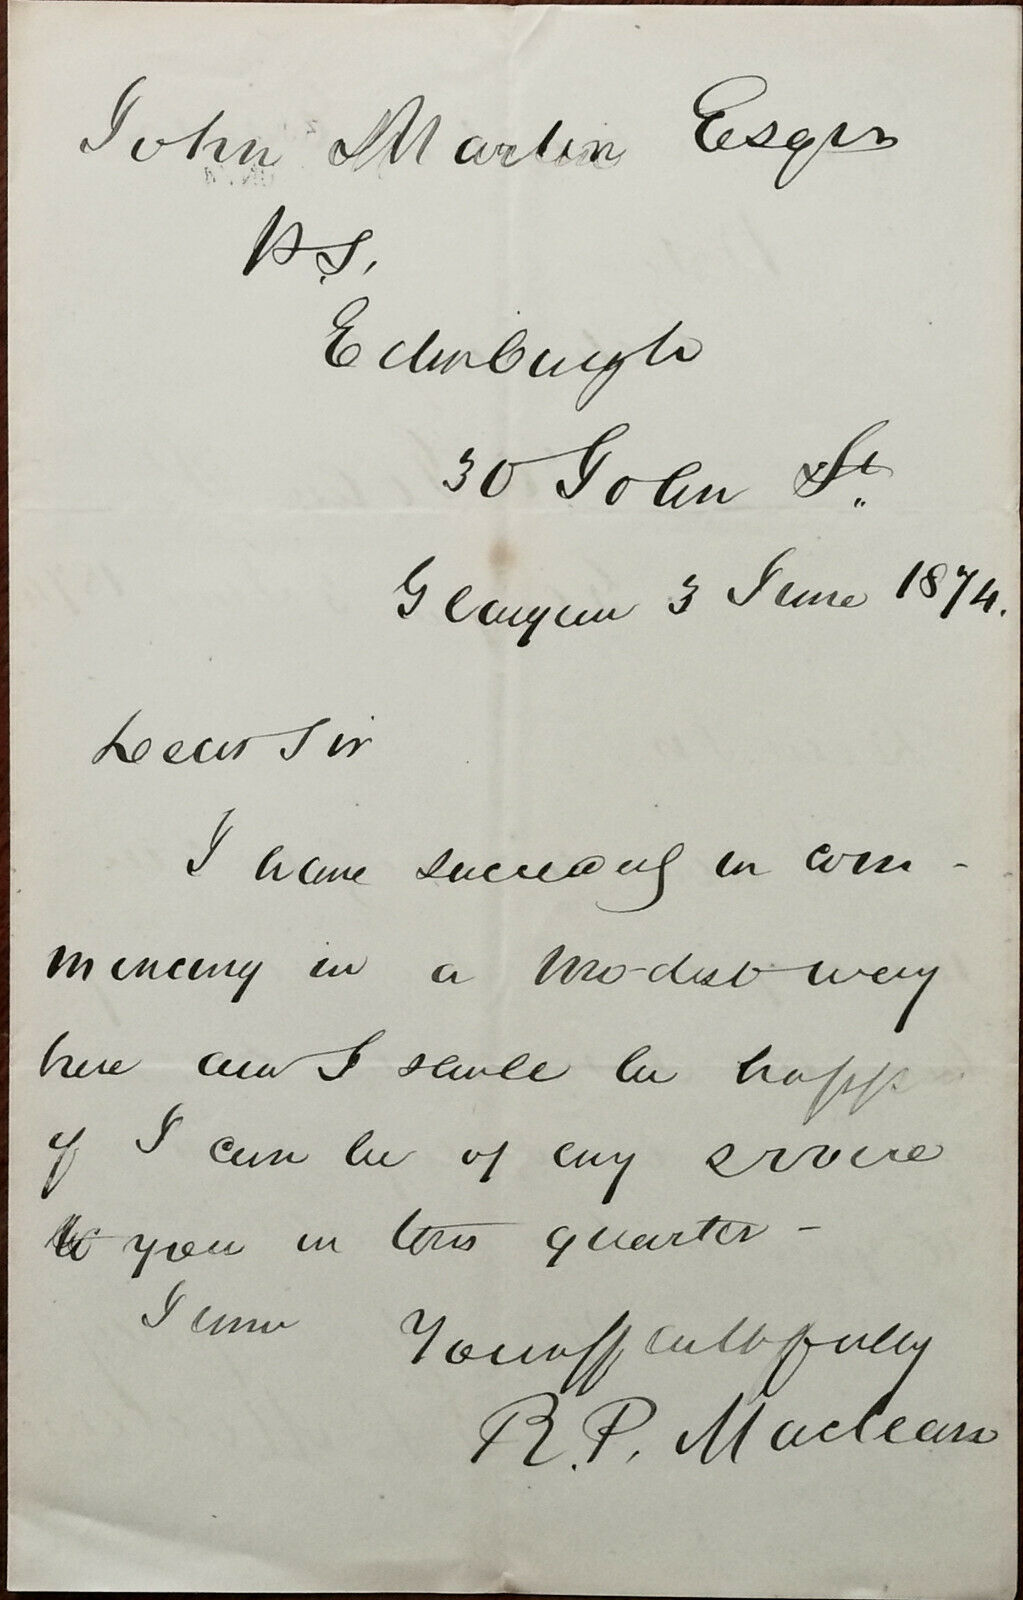 John Martin Esqr
W.S.
Edinburgh
30 John St.
Glasgow 3 June 1874.
Dear Sir
I have succeeded in com-
mencing in a modest way
here and I shall be happy
if I can be of any service
to you in this quarter -
I am Yours faithfully
R. P. Maclean